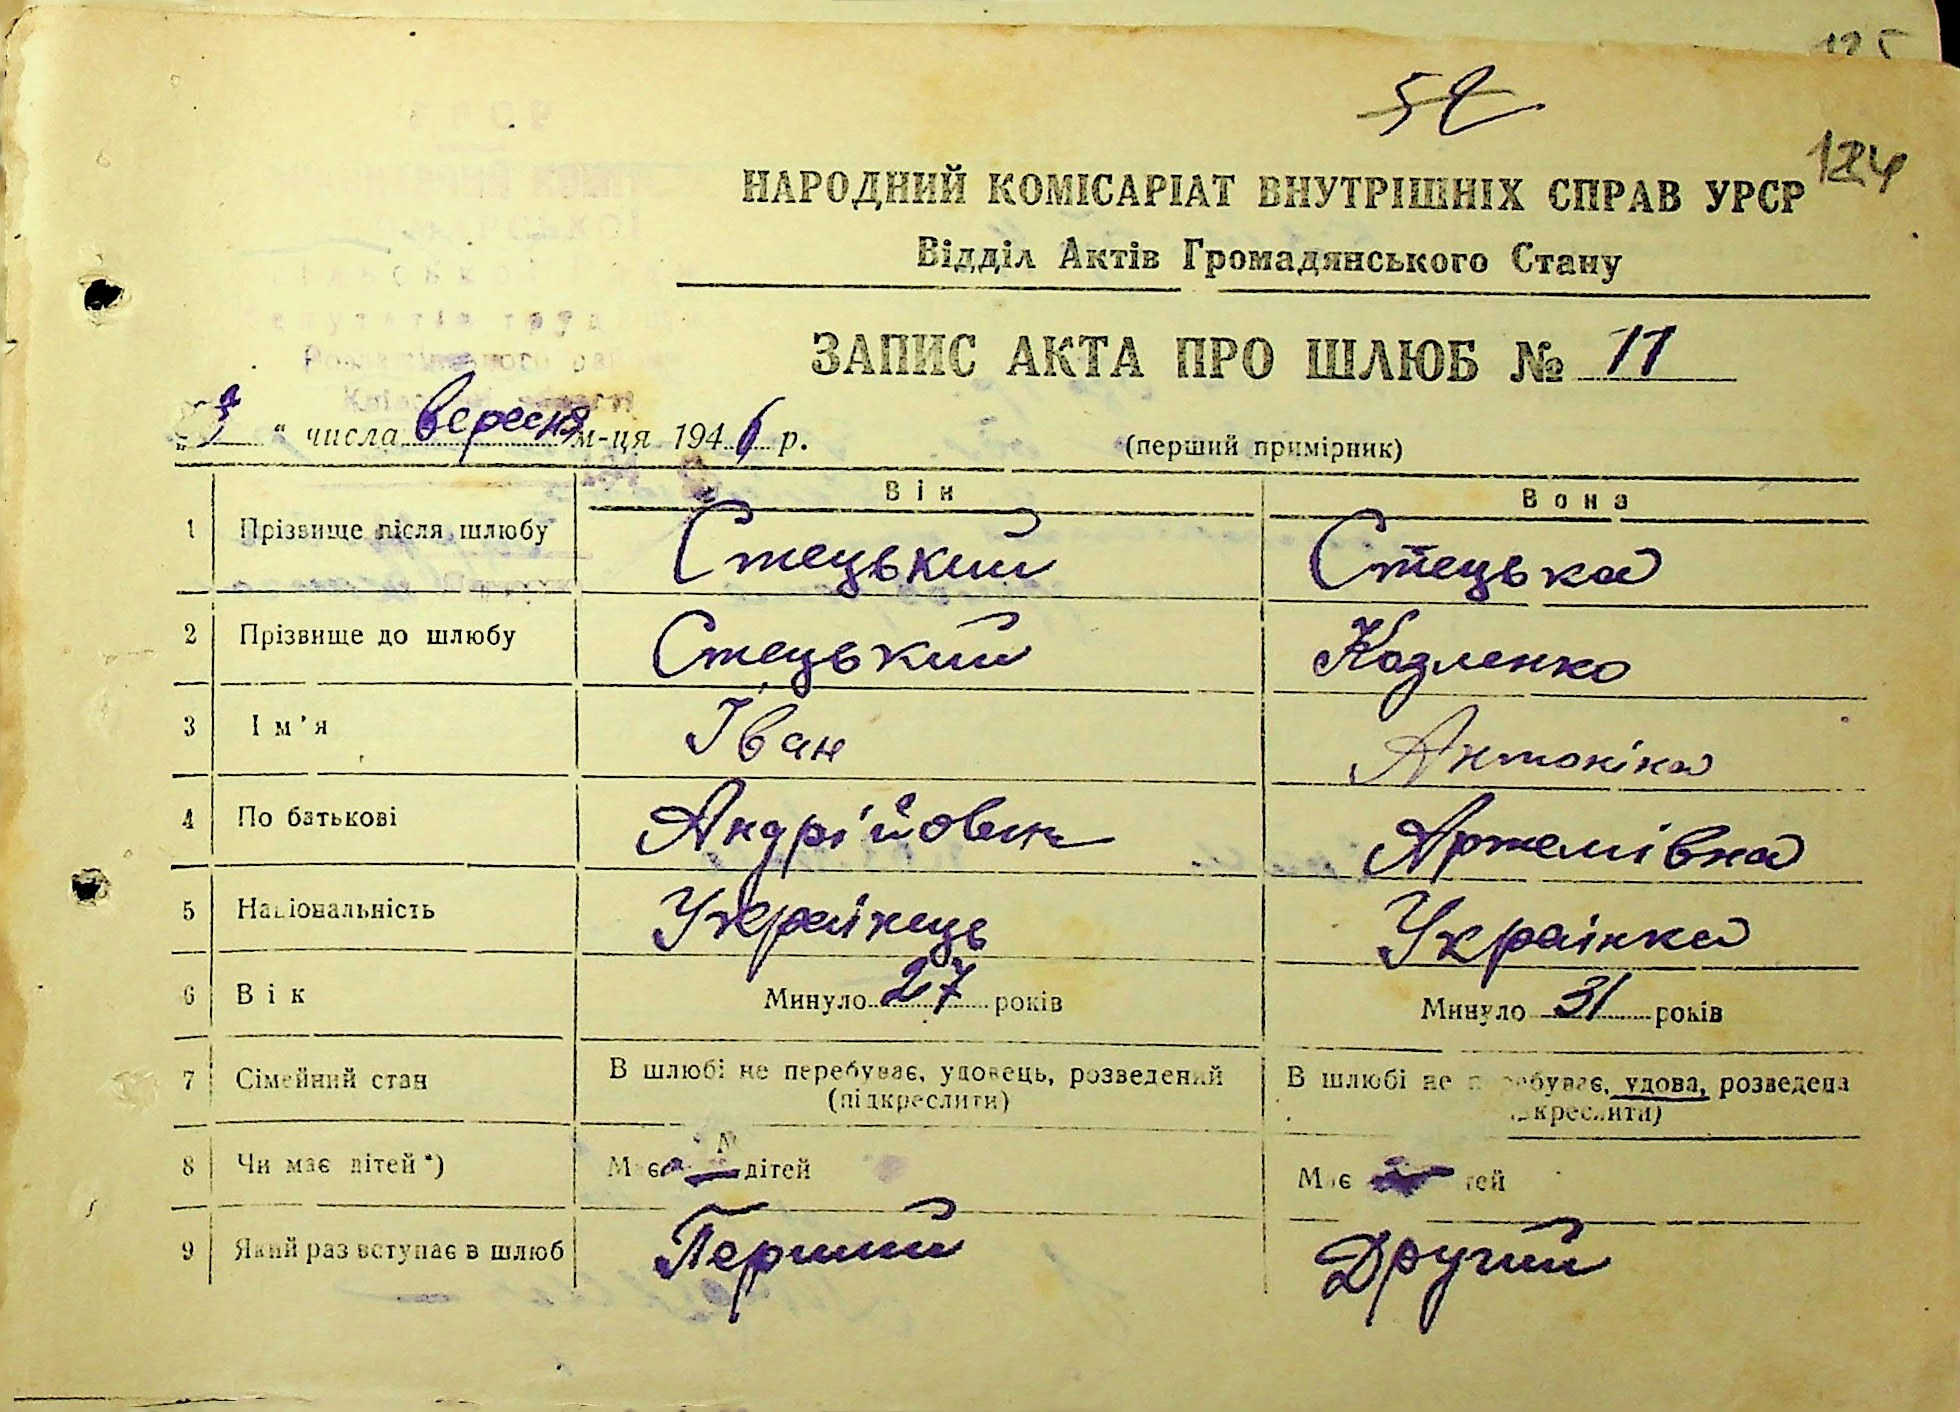 124
НАРОДНИЙ КОМІСАРІАТ ВНУТРІШНІХ СПРАВ УРСР
Відділ Актів Громадянського Стану
ЗАПИС АКТА ПРО ШЛЮБ № 11
" числа вересня м-ця 1946 р. (перший примірник)
Він Вона
1 Прізвище після шлюбу Стецький Стецька
2 Прізвище до шлюбу Стецький Козленко
3 Ім'я Іван Антоніна
4 По батькові Андрійович Артемівна
5 Національність Українець Українка
6 Вік Минуло 27 років Минуло 31 років
7 Сімейний стан В шлюбі не перебуває, удовець, розведений В шлюбі не перебуває, удова, розведена
(підкреслити) (підкреслити)
8 Чи має дітей*) Має дітей Має дітей
9 Який раз вступає в шлюб Перший Другий